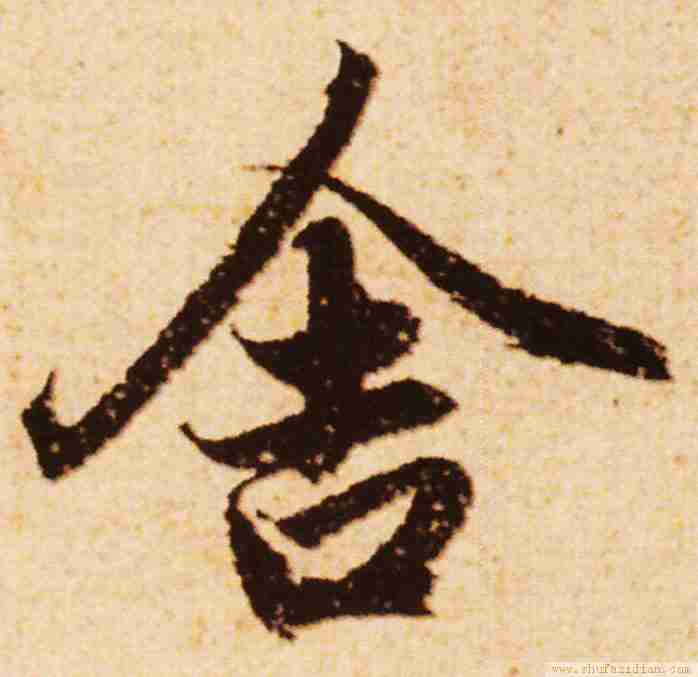 舍
www.shufazidian.com